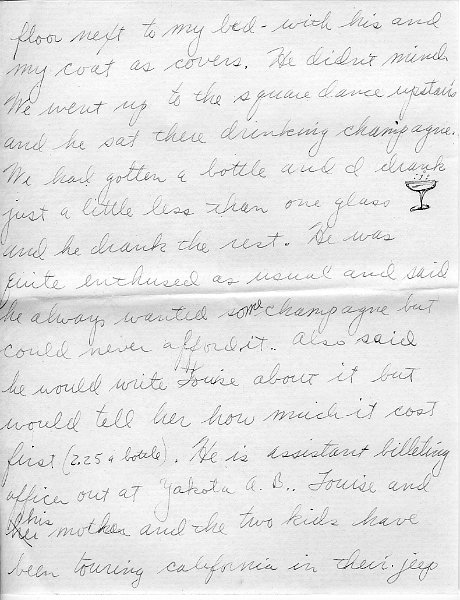 floor next to my bed - with his and
my coat as covers. He didn't mind.
We went up to the square dance upstairs
and he sat there drinking champagne.
We had gotten a bottle and I drank
just a little less than one glass
and he drank the rest. He was
quite enthused as usual and said
he always wanted some champagne but
could never afford it. Also said
he would write Louise about it but
would tell her how much it cost
first (2.25 a bottle). He is assistant billeting
officer out at Yakota A.B.. Louise and
his mother and the two kids have
been touring California in their jeep